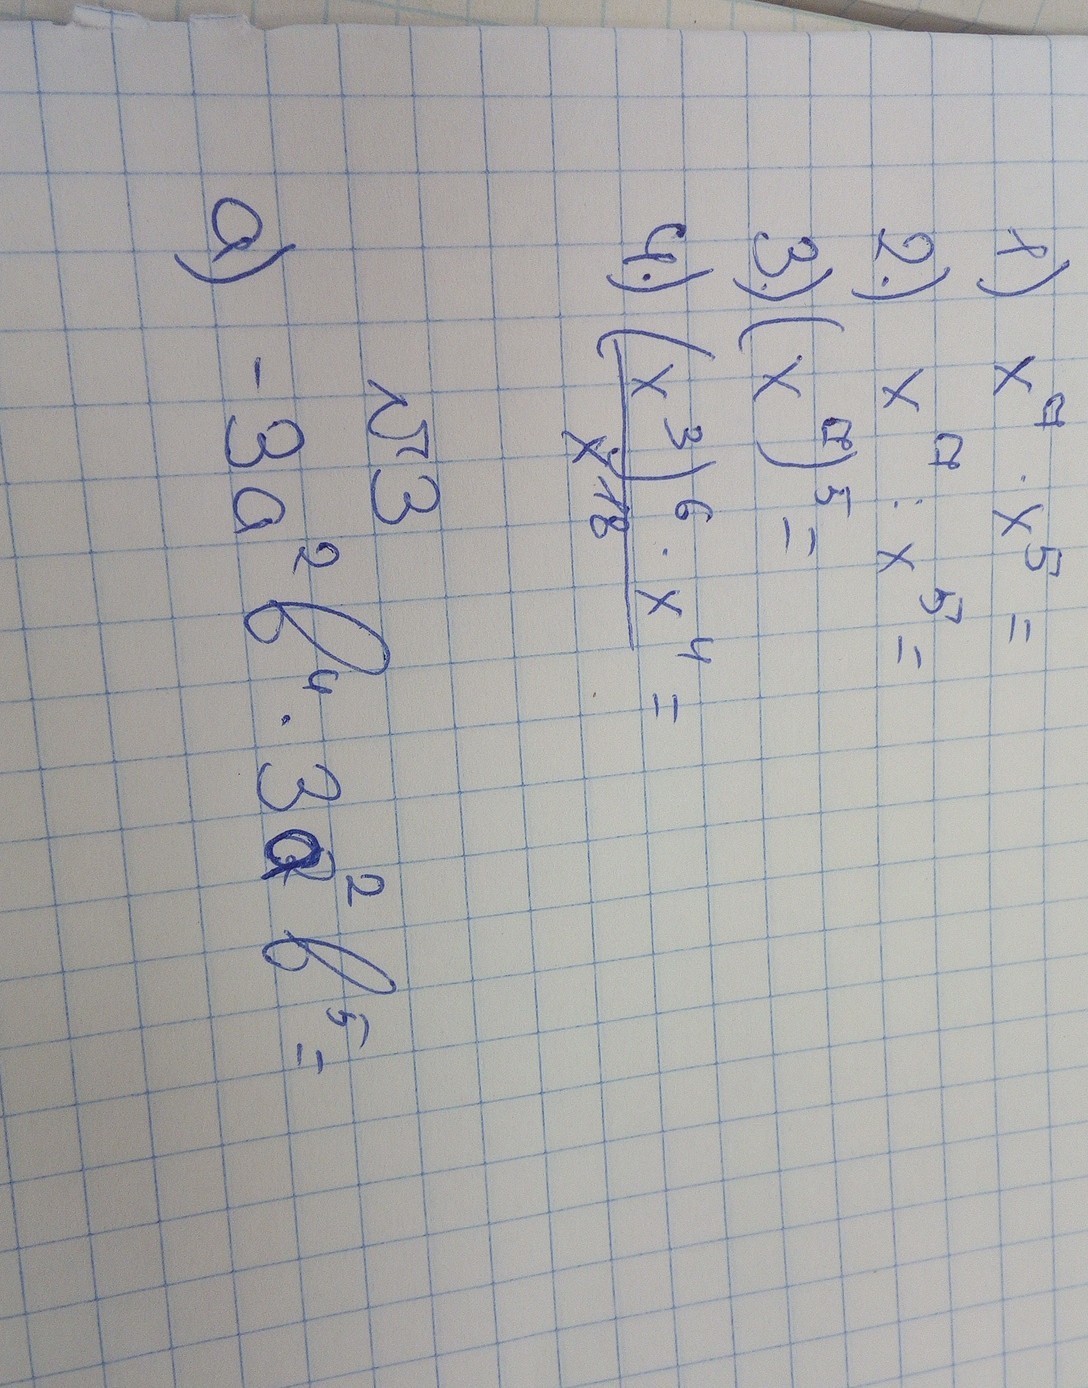 1) x⁹ · x⁵ =
2.) x⁹ : x⁵ =
3.) (x⁹)⁵ =
4.) (x³)⁶ · x⁴ =
x¹⁸
N3
a) -3a²b⁴ · 3a²b⁵ =